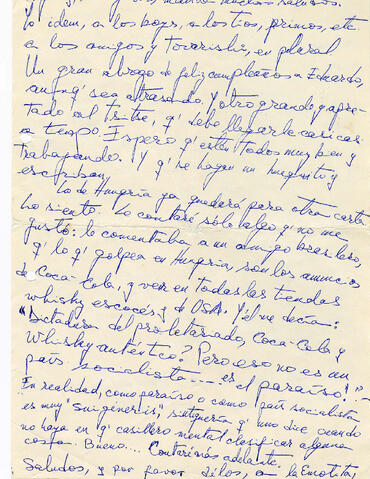 muchos saludos.
Yo idem, a los boys, a los tíos, primos, etc
a los amigos y tovarishi, en plural
Un gran abrazo de feliz cumpleaños a Eduardo,
aunq' sea atrasado. Y otro grande y apre-
tado al q' debe llegarle casi casi
a tiempo. Espero q' estén todos muy bien y
trabajando. Y q' se hagan un huequito y
escriban.
Lo de Hungría ya quedará para otra carta
Lo siento. Le contaré sólo algo q' no me
gustó: le comentaba a un amigo brasilero,
q' lo q' golpea en Hungría, son los anuncios
de Coca-Cola, y ver en todas las tiendas
whisky escocés y de USA. Y él me decía:
"Dictadura del proletariado, Coca-Cola y
Whisky auténtico? Pero eso no es un
país socialista --- es el paraíso!"
En realidad, como paraíso o como país socialista
es muy "suigeneris" q' uno dice cuando
no haya en q' casillero mental clasificar alguna
cosa. Bueno... Contaré más adelante.
Saludos, y por favor dilos, a la